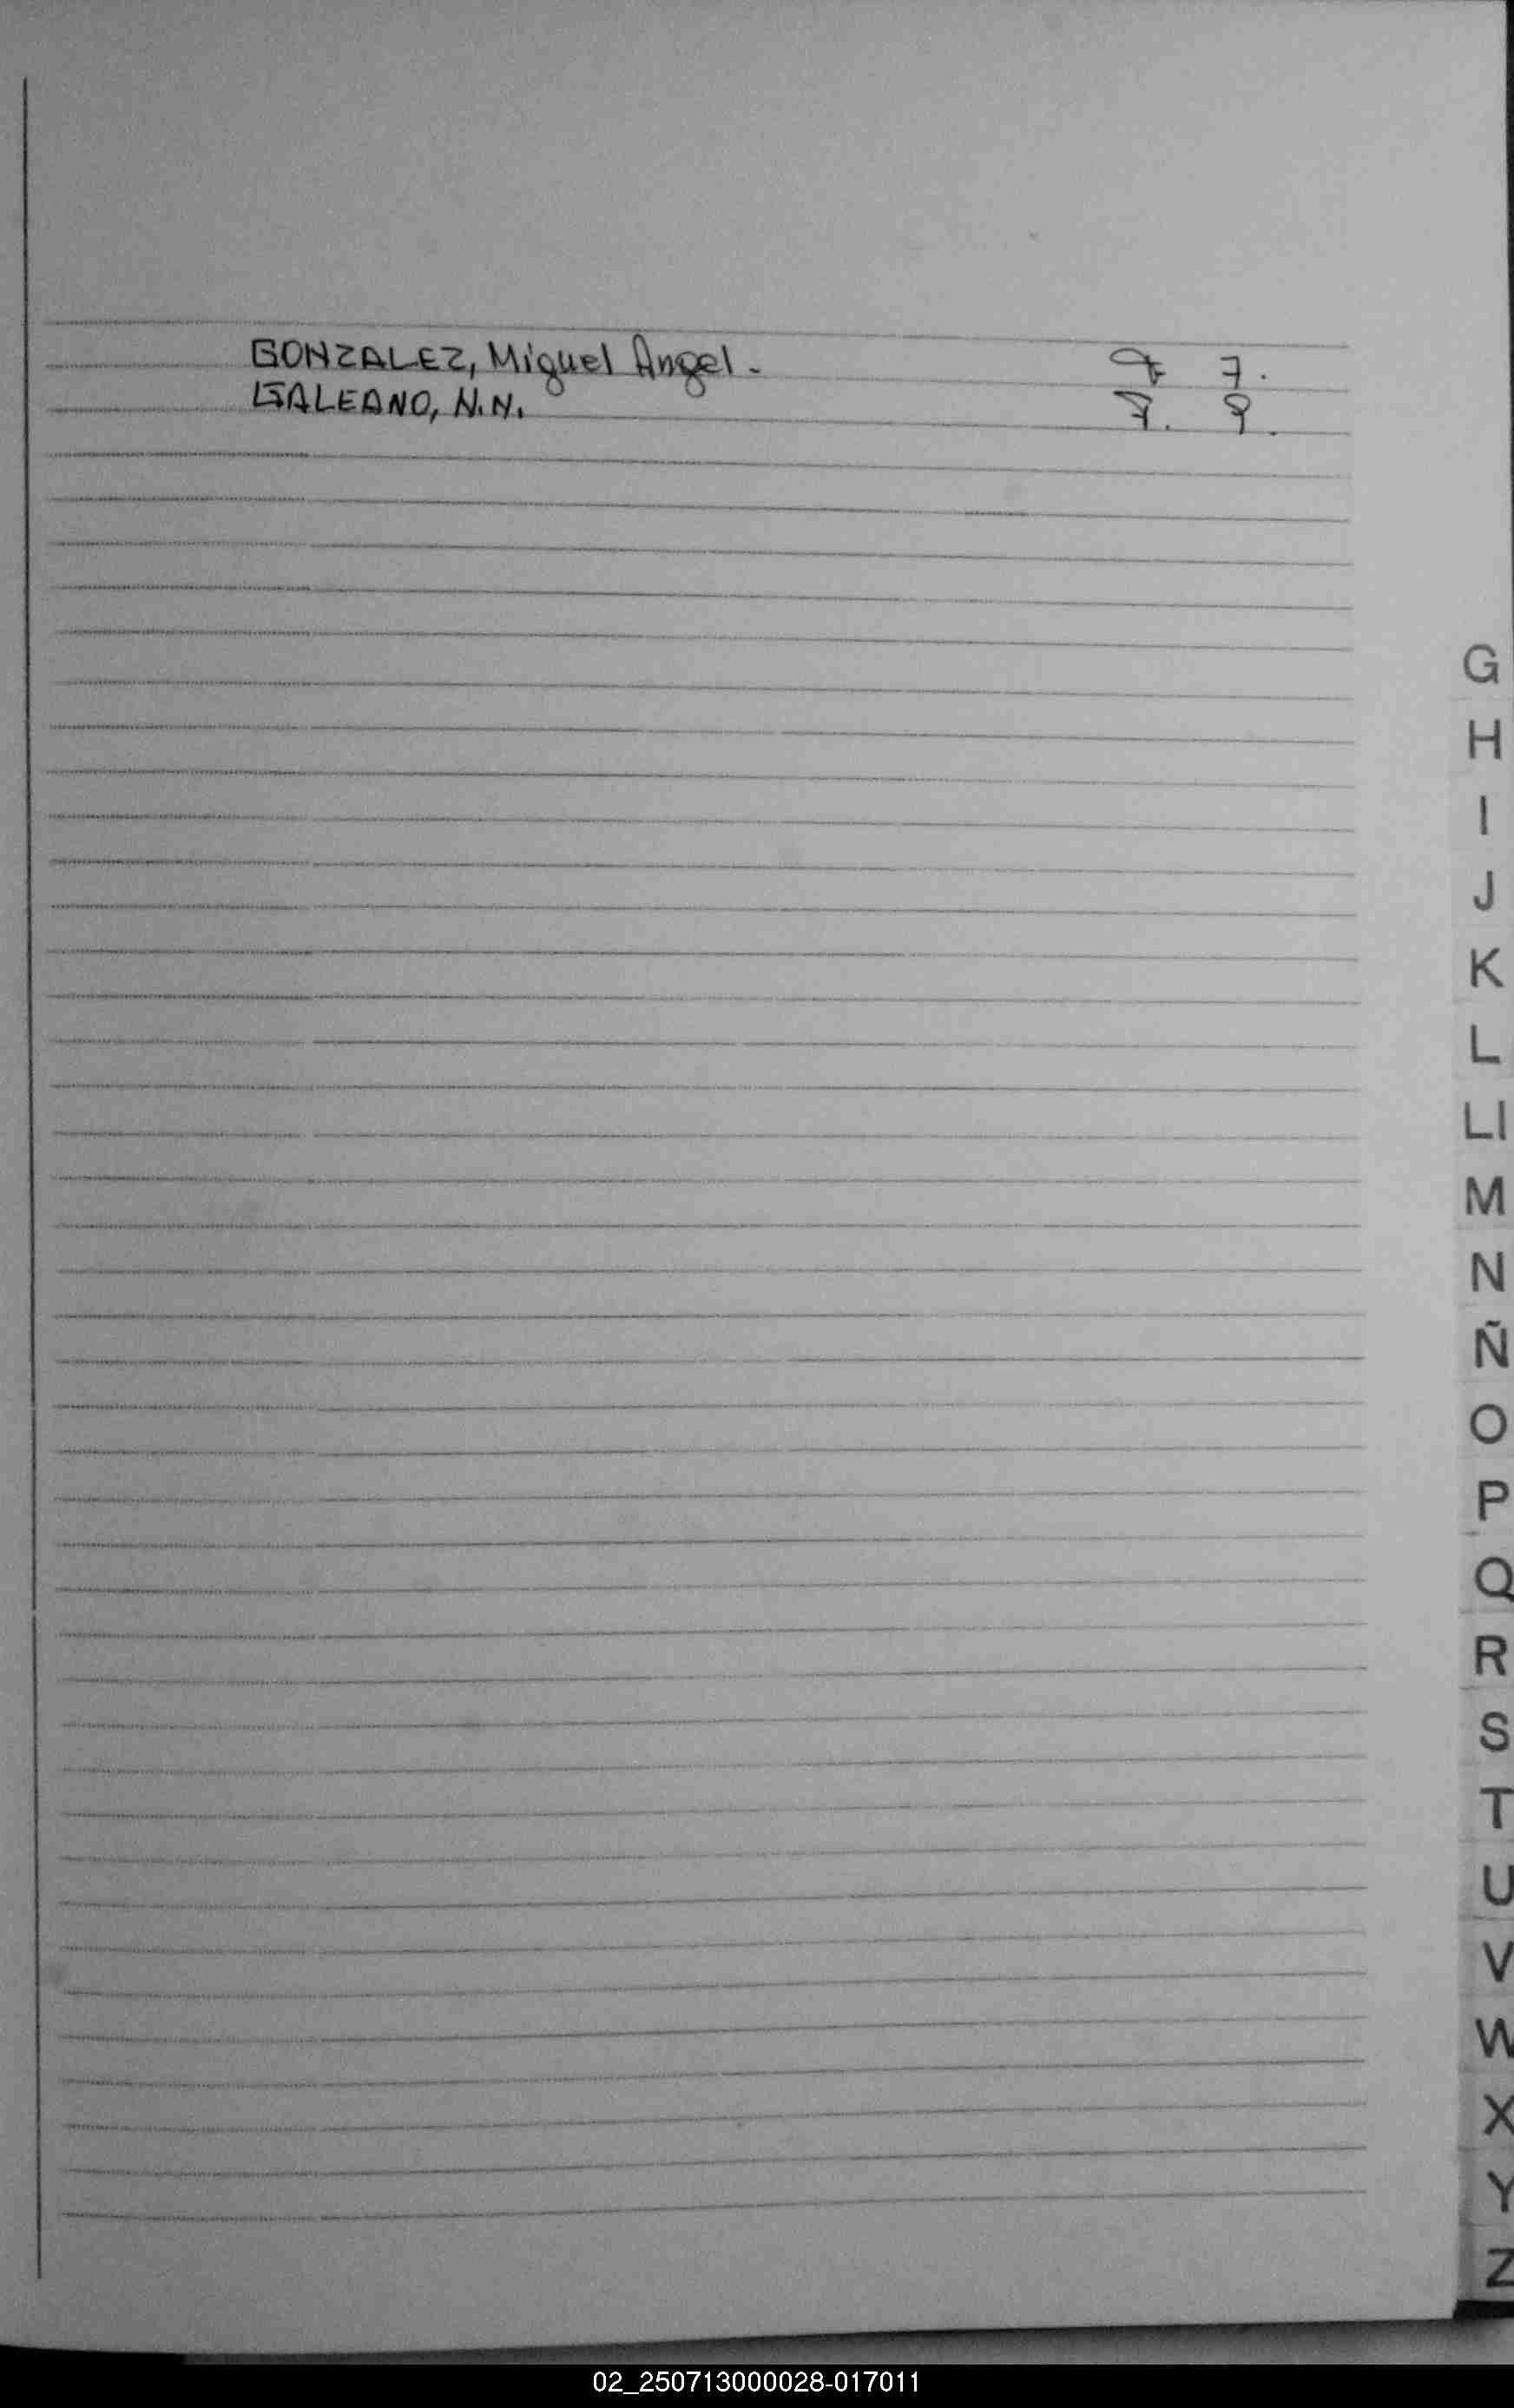 GONZALEZ, Miguel Angel. 7 7.
GALEANO, N.N. 7. 9.
G
H
I
J
K
L
Ll
M
N
Ñ
O
P
Q
R
S
T
U
V
W
X
Y
Z
02_250713000028-017011